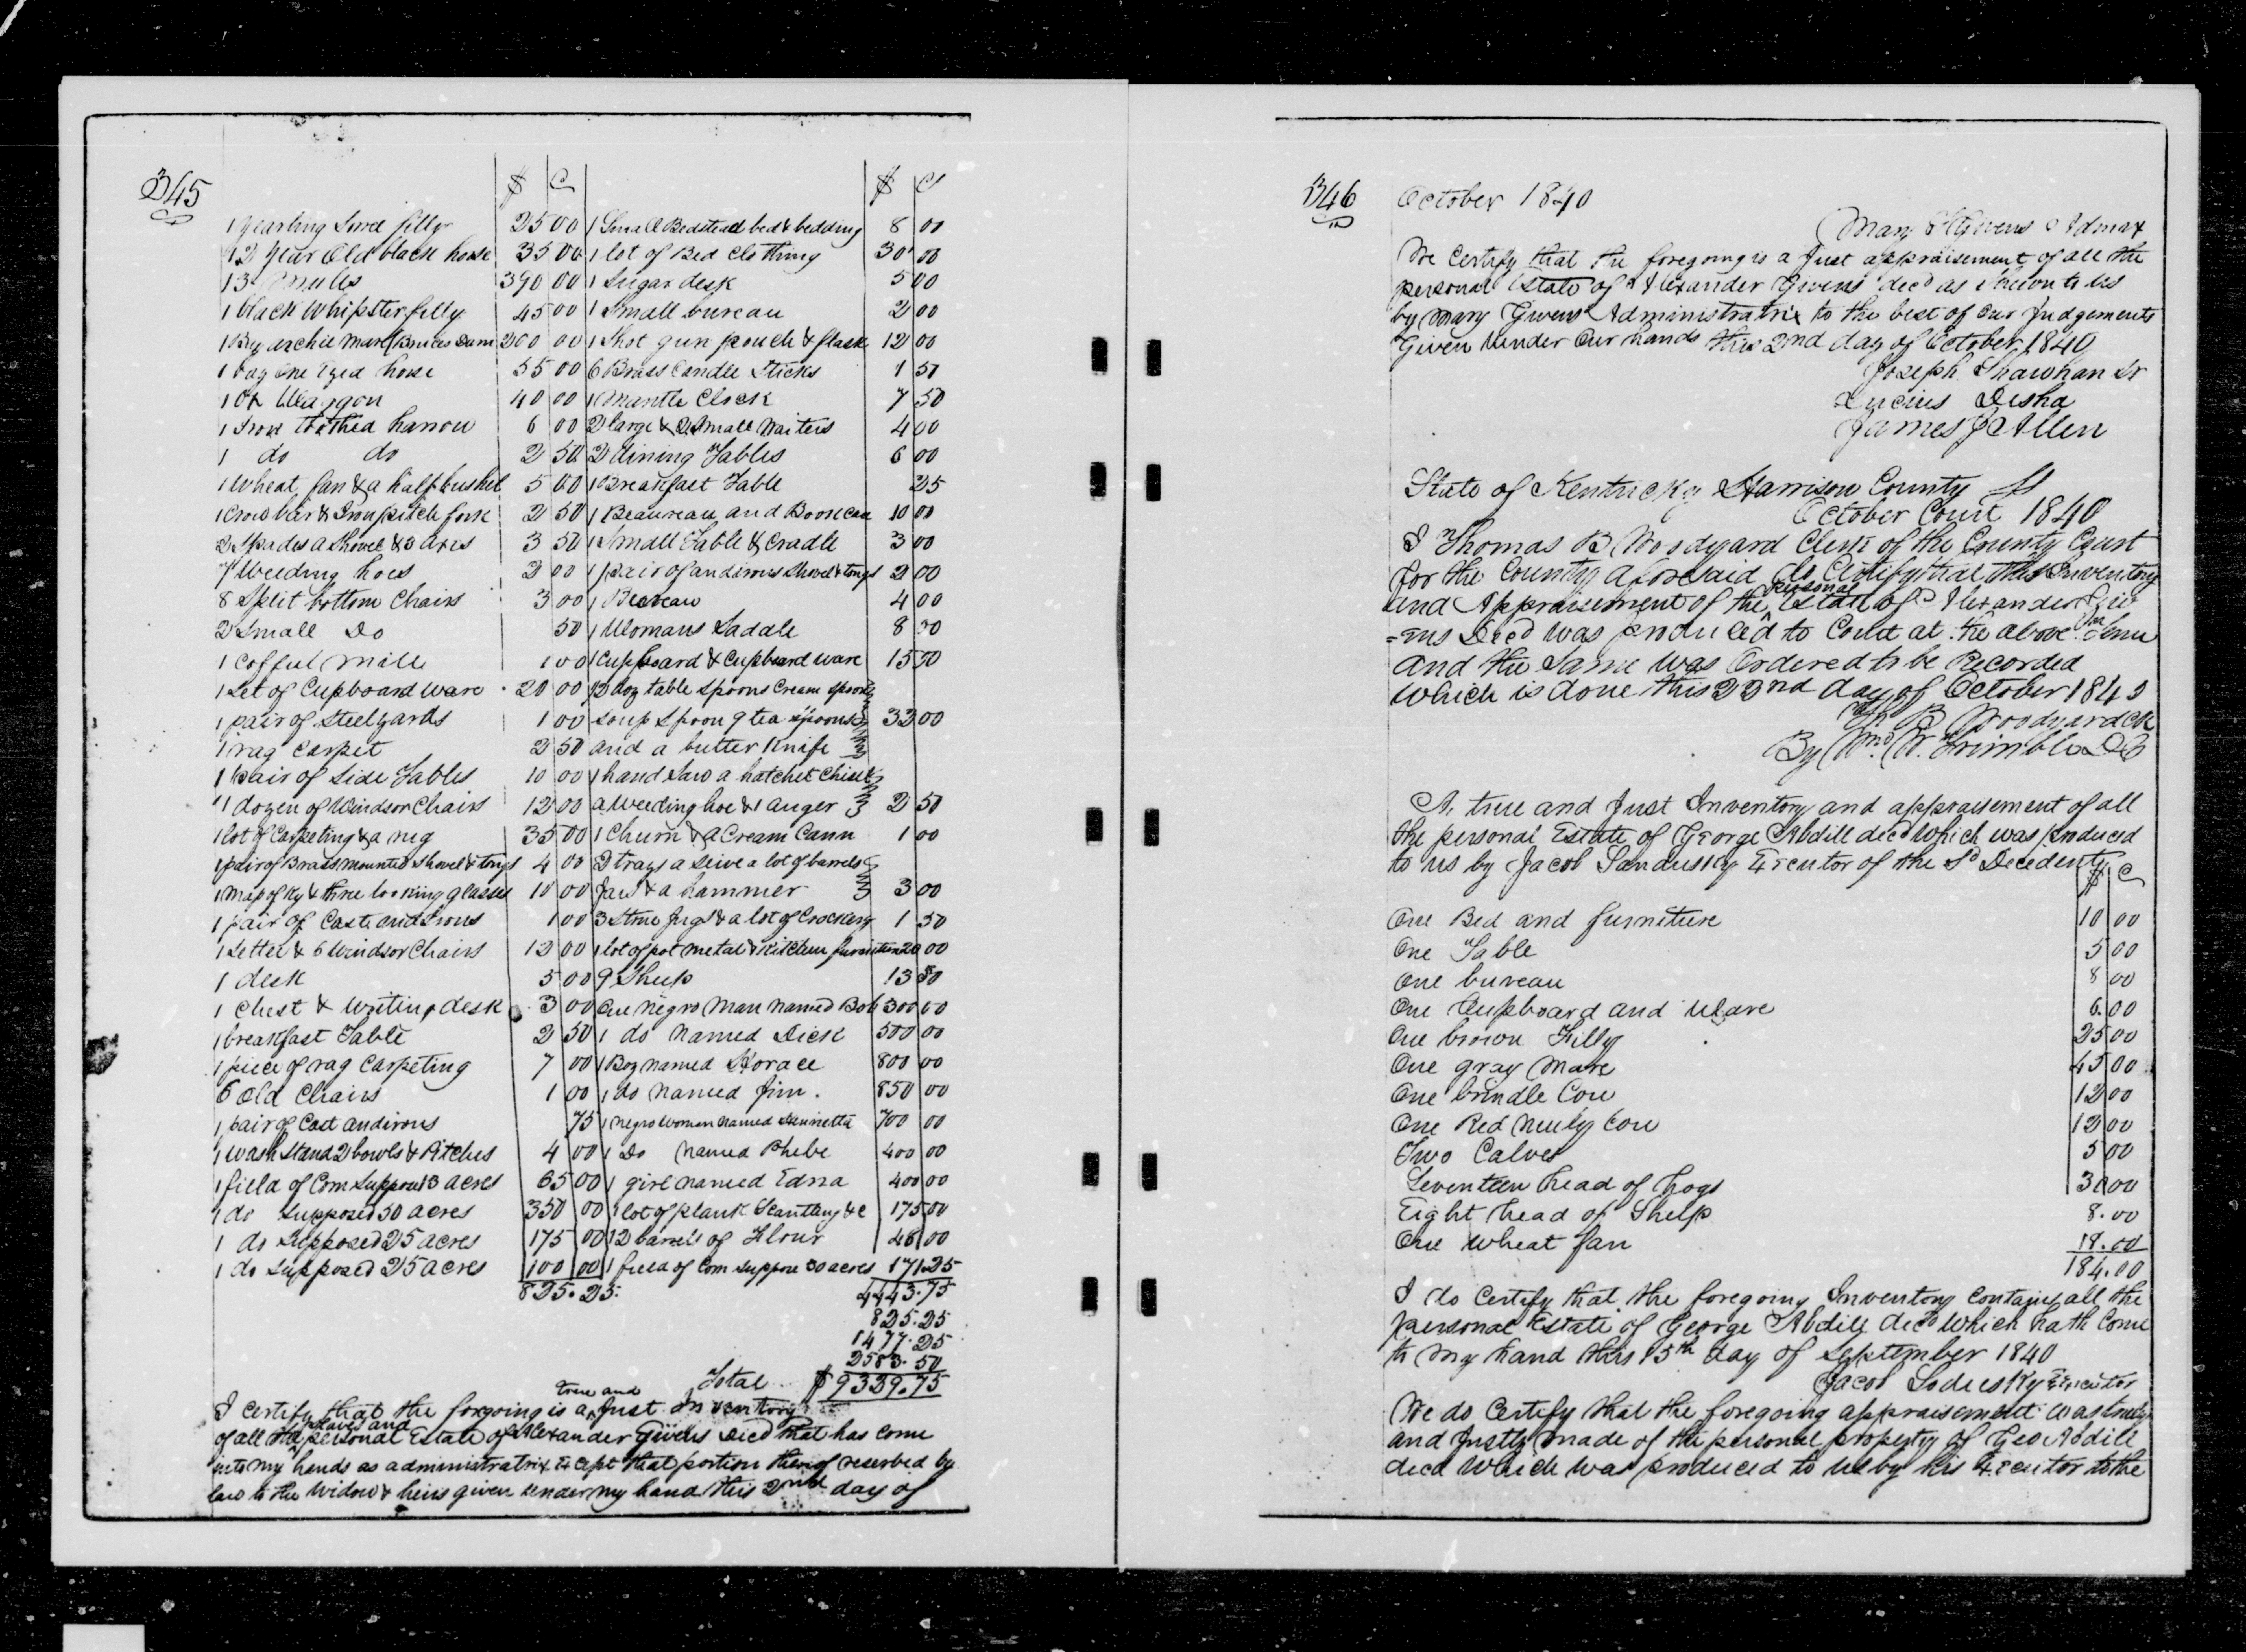 345
$ C $ C
1 yearling Sorrel filly 25 00
1 2 year Old black horse 35 00
13 mules 390 00
1 black Whipster filly 45 00
1 Bay archie mare Bruces Dam 200 00
1 bay One Eyed horse 35 00
1 Ox Waggon 40 00
1 Iron toothed harrow 6 00
1 do do 2 50
1 Wheat fan & a half bushel 5 00
1 Crow bar & Iron pitch fork 2 50
2 Spades a Shovel & 3 axes 3 50
7 Weeding hoes 2 00
8 Split bottom Chairs 3 00
2 Small Do 50
1 Coffeel Mill 1 00
1 Set of Cupboard Ware 20 00
1 pair of Steelyards 1 00
1 rag Carpet 2 50
1 pair of Side Tables 10 00
1 dozen of Windsor Chairs 12 00
1 lot of Carpeting & a rug 35 00
1 pair of Brass mounted Shovel & tongs 4 00
1 map of Ky & three looking glasses 10 00
1 pair of Cast andirons 1 00
1 Settee & 6 Windsor Chairs 12 00
1 desk 5 00
1 Chest & Writing desk 3 00
1 breakfast Table 2 50
1 piece of rag Carpeting 7 00
6 Old Chairs 1 00
1 pair of Cast andirons 75
1 Wash Stand 2 bowls & Pitches 4 00
1 field of Corn Suppose 13 acres 65 00
1 do Supposed 50 acres 350 00
1 do Supposed 25 acres 175 00
1 do Supposed 25 acres 100 00
825.25
1 Small Bedstead bed & bedding 8 00
1 lot of Bed Clothing 30 00
1 Sugar desk 5 00
1 Small bureau 2 00
1 Shot gun pouch & flask 12 00
6 Brass Candle Sticks 1 50
1 Mantle Clock 7 50
2 large & 2 Small Waiters 4 00
2 dining Tables 6 00
1 Breakfast Table 25
1 Beaureau and Bookcase 10 00
1 Small Table & Cradle 3 00
1 pair of andirons Shovel & tongs 2 00
1 Beareau 4 00
1 Womans Saddle 8 00
1 Cupboard & Cupboard ware 15 50
2 doz table Spoons Cream Spoon
soup Spoon 9 tea spoons 32 00
and a butter Knife
1 hand Saw a hatchet Chisel
a Weeding hoe & 1 auger 2 50
1 Churn & a Cream Cann 1 00
2 trays a Seive a lot of barrels
Jars & a hammer 3 00
3 Stone Jugs & a lot of Crockery 1 50
1 lot of pot metal & Kitchen furniture 20 00
9 Sheep 13 50
One negro Man named Bob 300 00
1 do named Dick 500 00
1 Boy named Horace 800 00
1 do named Jim 850 00
1 negro Woman named Henrietta 700 00
1 Do named Phebe 400 00
1 girl named Edna 400 00
1 lot of plank Scantling &c 175 00
12 barrels of Flour 46 00
1 field of Corn Suppose 30 acres 171.25
4443.75
825.25
1477.25
2583.50
Total $9329.75
I Certify that the forgoing is a true and Just Inventory
of all the slaves and personal Estate of Alexander Givens Decd that has Come
into my hands as administratrix Except that portion thereof reserved by
law to the Widow & heirs given under my hand this 2nd day of
346 October 1840
Mary Givens Admax
We Certify that the foregoing is a Just appraisement of all the
personal Estate of Alexander Givens decd as shown to us
by Mary Givens Administratrix to the best of our Judgements
Given Under Our hands this 2nd day of October 1840
Joseph Shawhan Sr
Lucius Desha
James J Allen
State of Kentucky Harrison County Ss
October Court 1840
I Thomas B Woodyard Clerk of the County Court
for the County aforesaid do Certify that this Inventory
and Appraisement of the personal Estate of Alexander Giv
=ens Decd was produced to Court at the above Term
and the Same Was Ordered to be Recorded
Which is done this 22nd day of October 1840
Th B Woodyard Clk
By Wm W. Trimble DC
A true and Just Inventory and appraisement of all
the personal Estate of George Abdill decd Which was produced
to us by Jacob Sandusky Executor of the Sd Decedent
$ C
One Bed and furniture 10 00
One Table 5 00
One bureau 8 00
One Cupboard and Ware 6.00
One brown Filly 25 00
One gray Mare 45 00
One brindle Cow 12 00
One Red Muley Cow 12 00
Two Calves 5 00
Seventeen head of hogs 30 00
Eight head of Sheep 8.00
One Wheat fan 18.00
184.00
I do Certify that the foregoing Inventory Contains all the
personal Estate of George Abdill decd Which hath Come
to my hand this 15th day of September 1840
Jacob Sodusky Executor
We do Certify that the foregoing appraisement was truly
and Justly made of the personal property of Geo Abdill
decd Which was produced to us by his Executor to the